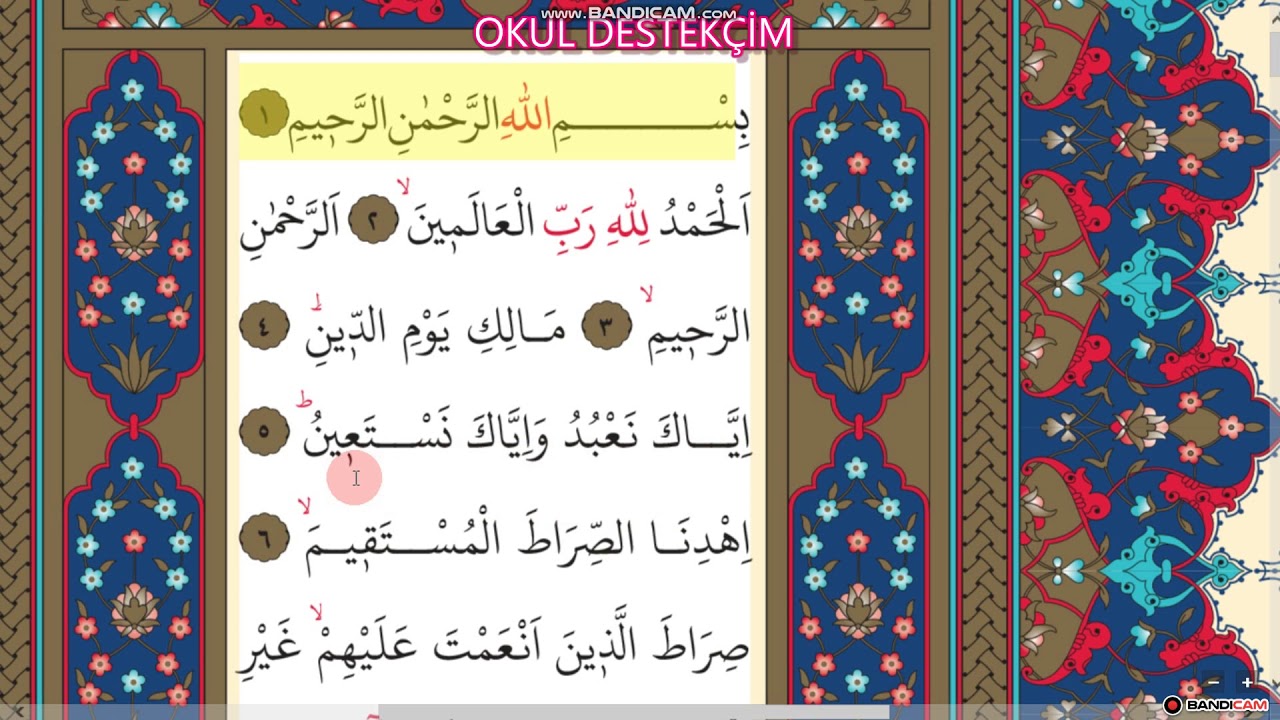 www.BANDICAM.com
OKUL DESTEKÇİM
بِسْمِ اللّٰهِ الرَّحْمٰنِ الرَّح۪يمِ ١
اَلْحَمْدُ لِلّٰهِ رَبِّ الْعَالَم۪ينَۙ ٢ اَلرَّحْمٰنِ
الرَّح۪يمِۙ ٣ مَالِكِ يَوْمِ الدّ۪ينِۜ ٤
اِيَّاكَ نَعْبُدُ وَاِيَّاكَ نَسْتَع۪ينُۜ ٥
اِهْدِنَا الصِّرَاطَ الْمُسْتَق۪يمَۙ ٦
صِرَاطَ الَّذ۪ينَ اَنْعَمْتَ عَلَيْهِمْۙ غَيْرِ
BANDICAM